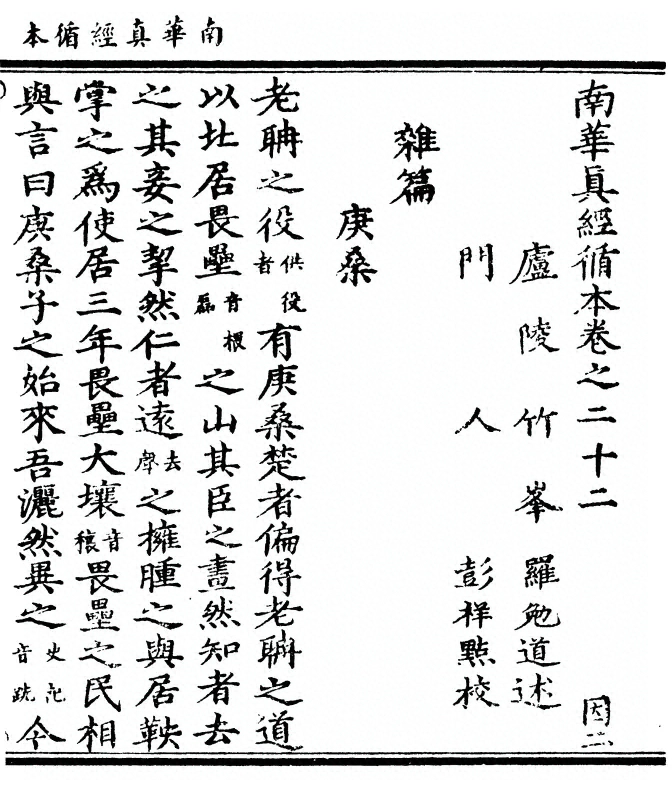 南華真經循本
南華眞經循本卷之二十二 因二
廬陵竹峯羅勉道述
門人彭祥點校
雜篇
庚桑
老聃之役供役者有庚桑楚者偏得老聃之道
以北居畏壘音椳磊之山其臣之畫然知者去
之其妾之挈然仁者遠去聲之擁腫之與居鞅
掌之爲使居三年畏壘大壤音穰畏壘之民相
與言曰庚桑子之始來吾灑然異之史記音跣今